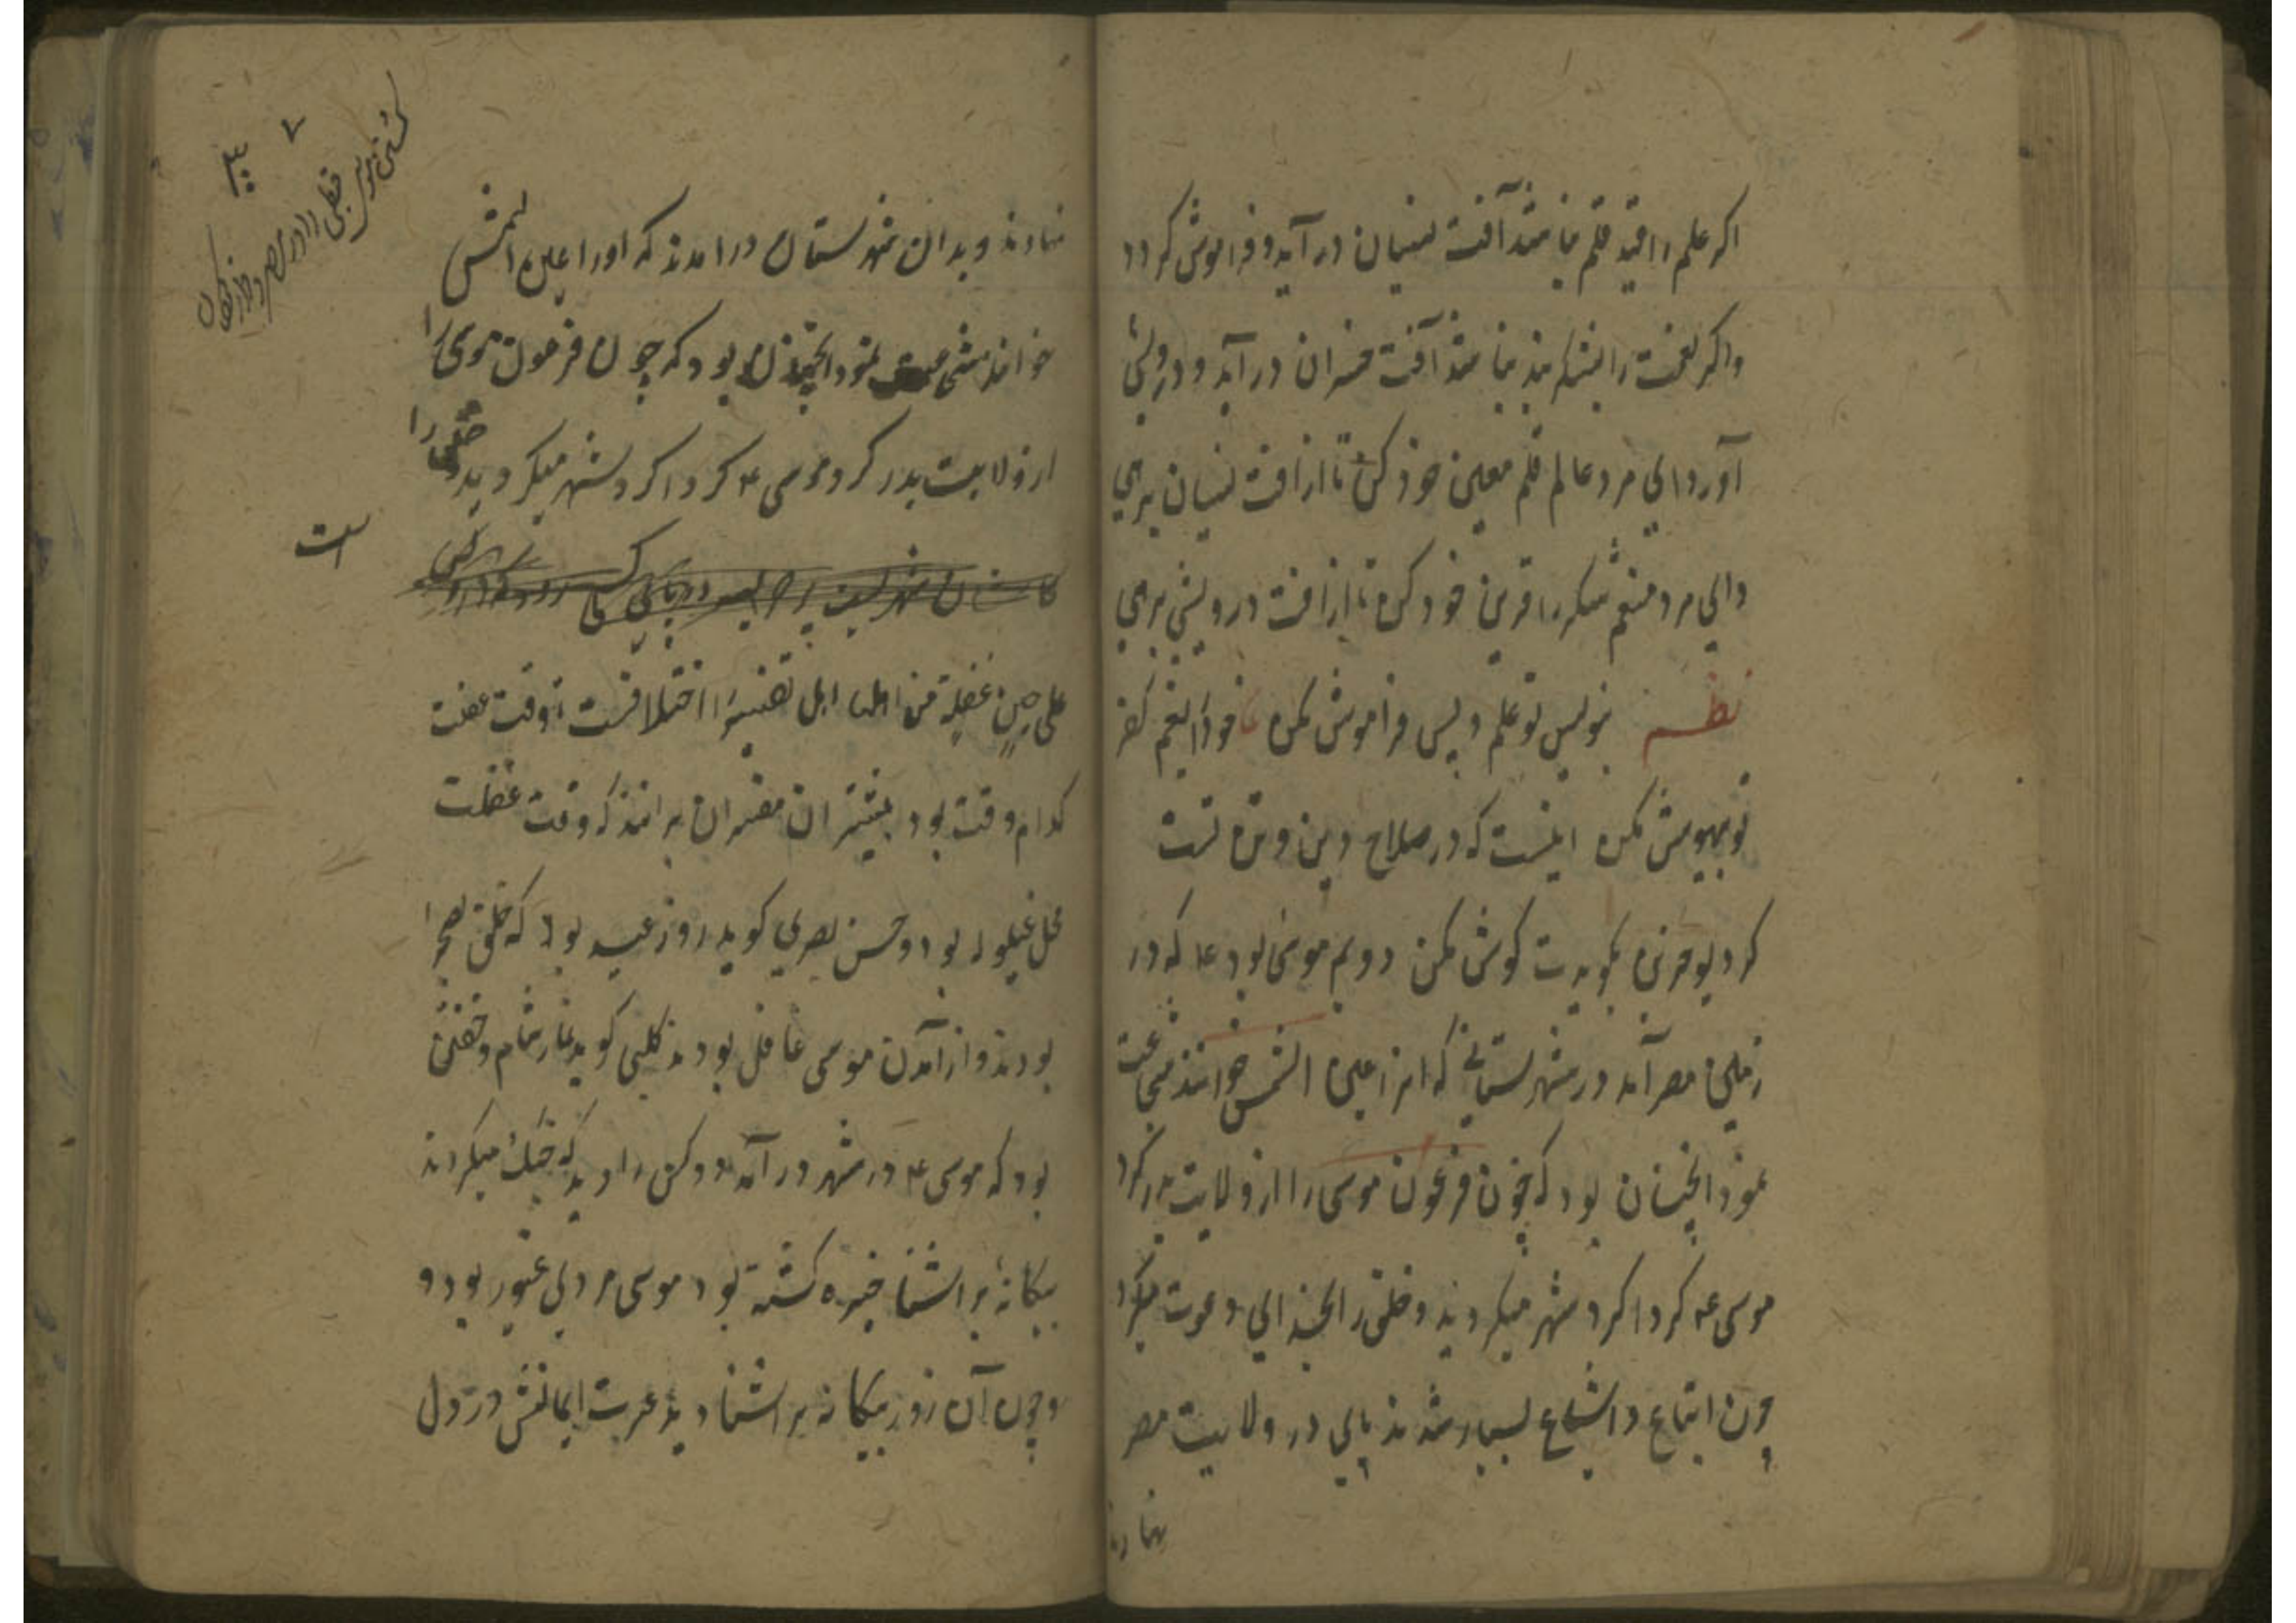 اکر علم را قید قلم نباشد آفت نسیان در آید و فراموش کردد
واکر نعمت را بشکر بند نباشد آفت خسران در آید و درویشی
آورد ای مرد عالم قلم معین خود کن تا از آفت نسیان برهی
و ای مرد منعم شکر را قرین خود کن تا از آفت درویشی برهی
نظم بنویس تو علم و پس فراموش مکن خود را
تو بیهوش مکن اینست که در صلاح دین و تن تست
کرد بکویدت کوش مکن دویم موسی بود ع که در
زمین مصر آمد در شهرستانی که انرا عین الشمس خوانند
بود که چون فرعون موسی را از ولایت بدر کرد
موسی ع کرداکرد شهر میکردید و خلق را بخدای دعوت میکرد
چون اتباع و اشیاع بسیار شدند پای در ولایت مصر
نهادند
نهادند و بدان شهرستان درامدند که اورا عین الشمس
خوانند بود که چون فرعون موسی را
از ولایت بدر کرد موسی ع کرداکرد شهر میکردید و خلق را
علی حین غفلة من اهلها اهل تفسیر را اختلافست تا وقت غفلت
کدام وقت بود بیشتر ان مفسران برانند که وقت غفلت
محل غیلوله بود و حسن بصری کوید روز عید بود که خلق بصحرا
بودند و از آمدن موسی غافل بودند کلبی کوید نماز شام و خفتن
بود که موسی ع در شهر در آمد دو کس را دید که جنک میکردند
بیکانهٔ بر آشنا خیره کشته بود موسی مردی غیور بود و
و چون آن روز بیکانه بر آشنا دید غیرت ایمانش در دل
کشتن موسی قبطی را در مصر
است